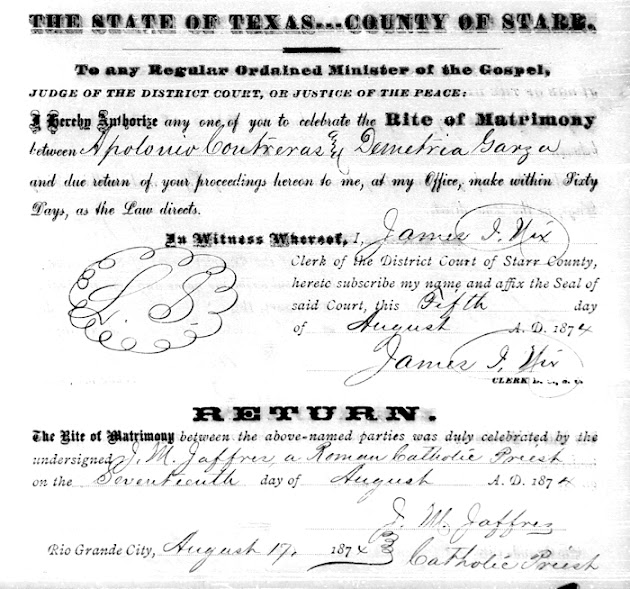 THE STATE OF TEXAS---COUNTY OF STARR.
To any Regular Ordained Minister of the Gospel,
JUDGE OF THE DISTRICT COURT, OR JUSTICE OF THE PEACE:
I Hereby Authorize any one, of you to celebrate the Rite of Matrimony
between Apolonio Contreras & Demetria Garza
and due return of your proceedings hereon to me, at my Office, make within Sixty
Days, as the Law directs.
In Witness Whereof, I, James I. Nix
Clerk of the District Court of Starr County,
hereto subscribe my name and affix the Seal of
L. S.
said Court, this Fifth day
of August A. D. 1874
James I. Nix
CLERK
RETURN.
The Rite of Matrimony between the above-named parties was duly celebrated by the
undersigned J. M. Jaffres, a Roman Catholic Priest
on the Seventeenth day of August A. D. 1874
J. M. Jaffres
Rio Grande City, August 17, 1874
Catholic Priest